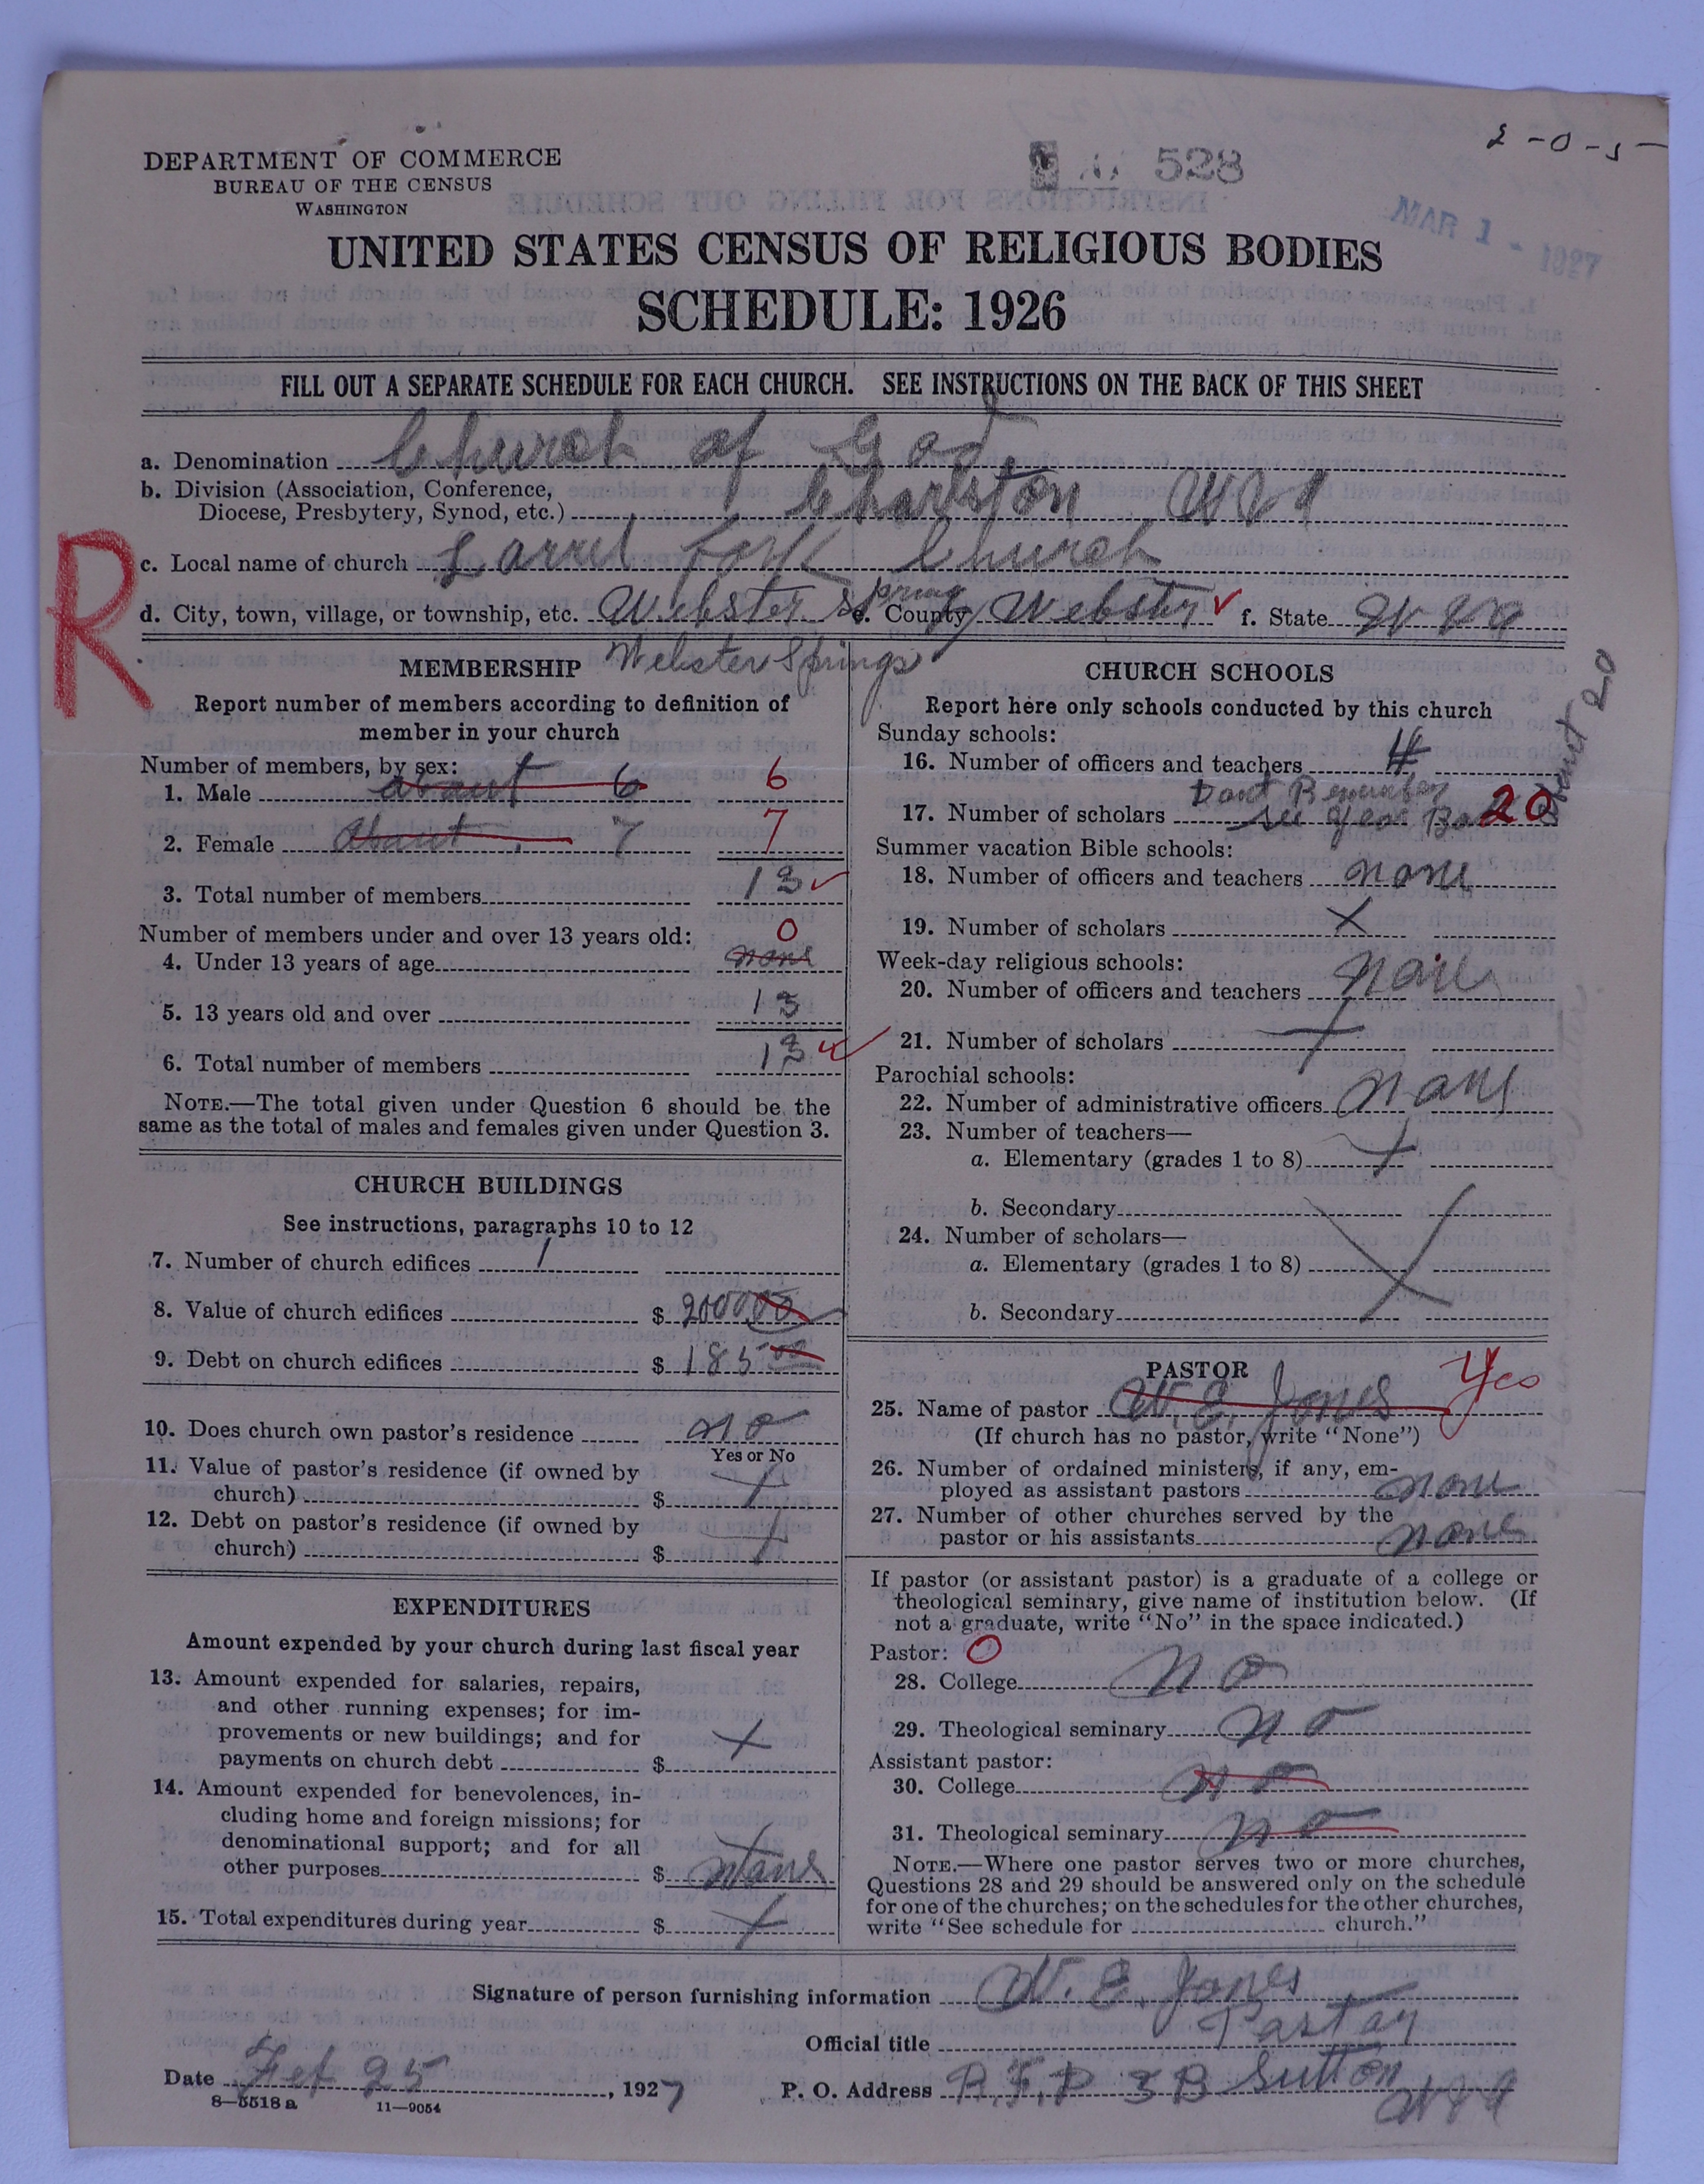 2-0-5-
DEPARTMENT OF COMMERCE
BUREAU OF THE CENSUS
WASHINGTON
528
MAR 1 - 1927
UNITED STATES CENSUS OF RELIGIOUS BODIES
SCHEDULE: 1926
FILL OUT A SEPARATE SCHEDULE FOR EACH CHURCH. SEE INSTRUCTIONS ON THE BACK OF THIS SHEET
a. Denomination Church of God
b. Division (Association, Conference,
Diocese, Presbytery, Synod, etc.) Charlston W Va
R
c. Local name of church Larrel Fork Church
d. City, town, village, or township, etc. Webster Spring e. County Webster f. State W Va
Webster Springs
MEMBERSHIP
Report number of members according to definition of
member in your church
Number of members, by sex:
1. Male about 6 6
2. Female about 7 7
3. Total number of members 13
Number of members under and over 13 years old: 0
4. Under 13 years of age none
5. 13 years old and over 13
6. Total number of members 13
NOTE.—The total given under Question 6 should be the
same as the total of males and females given under Question 3.
CHURCH BUILDINGS
See instructions, paragraphs 10 to 12
7. Number of church edifices 1
8. Value of church edifices $ 2000 00
9. Debt on church edifices $ 185 00
10. Does church own pastor's residence no
Yes or No
11. Value of pastor's residence (if owned by
church) $ X
12. Debt on pastor's residence (if owned by
church) $ X
EXPENDITURES
Amount expended by your church during last fiscal year
13. Amount expended for salaries, repairs,
and other running expenses; for im-
provements or new buildings; and for
payments on church debt $ X
14. Amount expended for benevolences, in-
cluding home and foreign missions; for
denominational support; and for all
other purposes $ none
15. Total expenditures during year $ X
CHURCH SCHOOLS
Report here only schools conducted by this church
Sunday schools:
16. Number of officers and teachers 4
Dont Remember
17. Number of scholars see Year Book 20
about 20
Summer vacation Bible schools:
18. Number of officers and teachers none
19. Number of scholars X
Week-day religious schools:
20. Number of officers and teachers none
21. Number of scholars X
Parochial schools:
22. Number of administrative officers none
23. Number of teachers—
a. Elementary (grades 1 to 8) X
b. Secondary
24. Number of scholars—
a. Elementary (grades 1 to 8) X
b. Secondary
PASTOR
25. Name of pastor W. E. Jones Yes
(If church has no pastor, write "None")
26. Number of ordained ministers, if any, em-
ployed as assistant pastors none
27. Number of other churches served by the
pastor or his assistants none
If pastor (or assistant pastor) is a graduate of a college or
theological seminary, give name of institution below. (If
not a graduate, write "No" in the space indicated.)
Pastor: 0
28. College no
29. Theological seminary no
Assistant pastor:
30. College no
31. Theological seminary no
NOTE.—Where one pastor serves two or more churches,
Questions 28 and 29 should be answered only on the schedule
for one of the churches; on the schedules for the other churches,
write "See schedule for church."
Signature of person furnishing information W. E. Jones
Official title Pastor
Date Feb 25, 1927 P. O. Address R.F.D 3 B Sutton
W Va
8—5518 a 11—9054